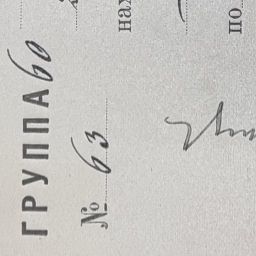 ГРУППА 60
№ 63
нах
по